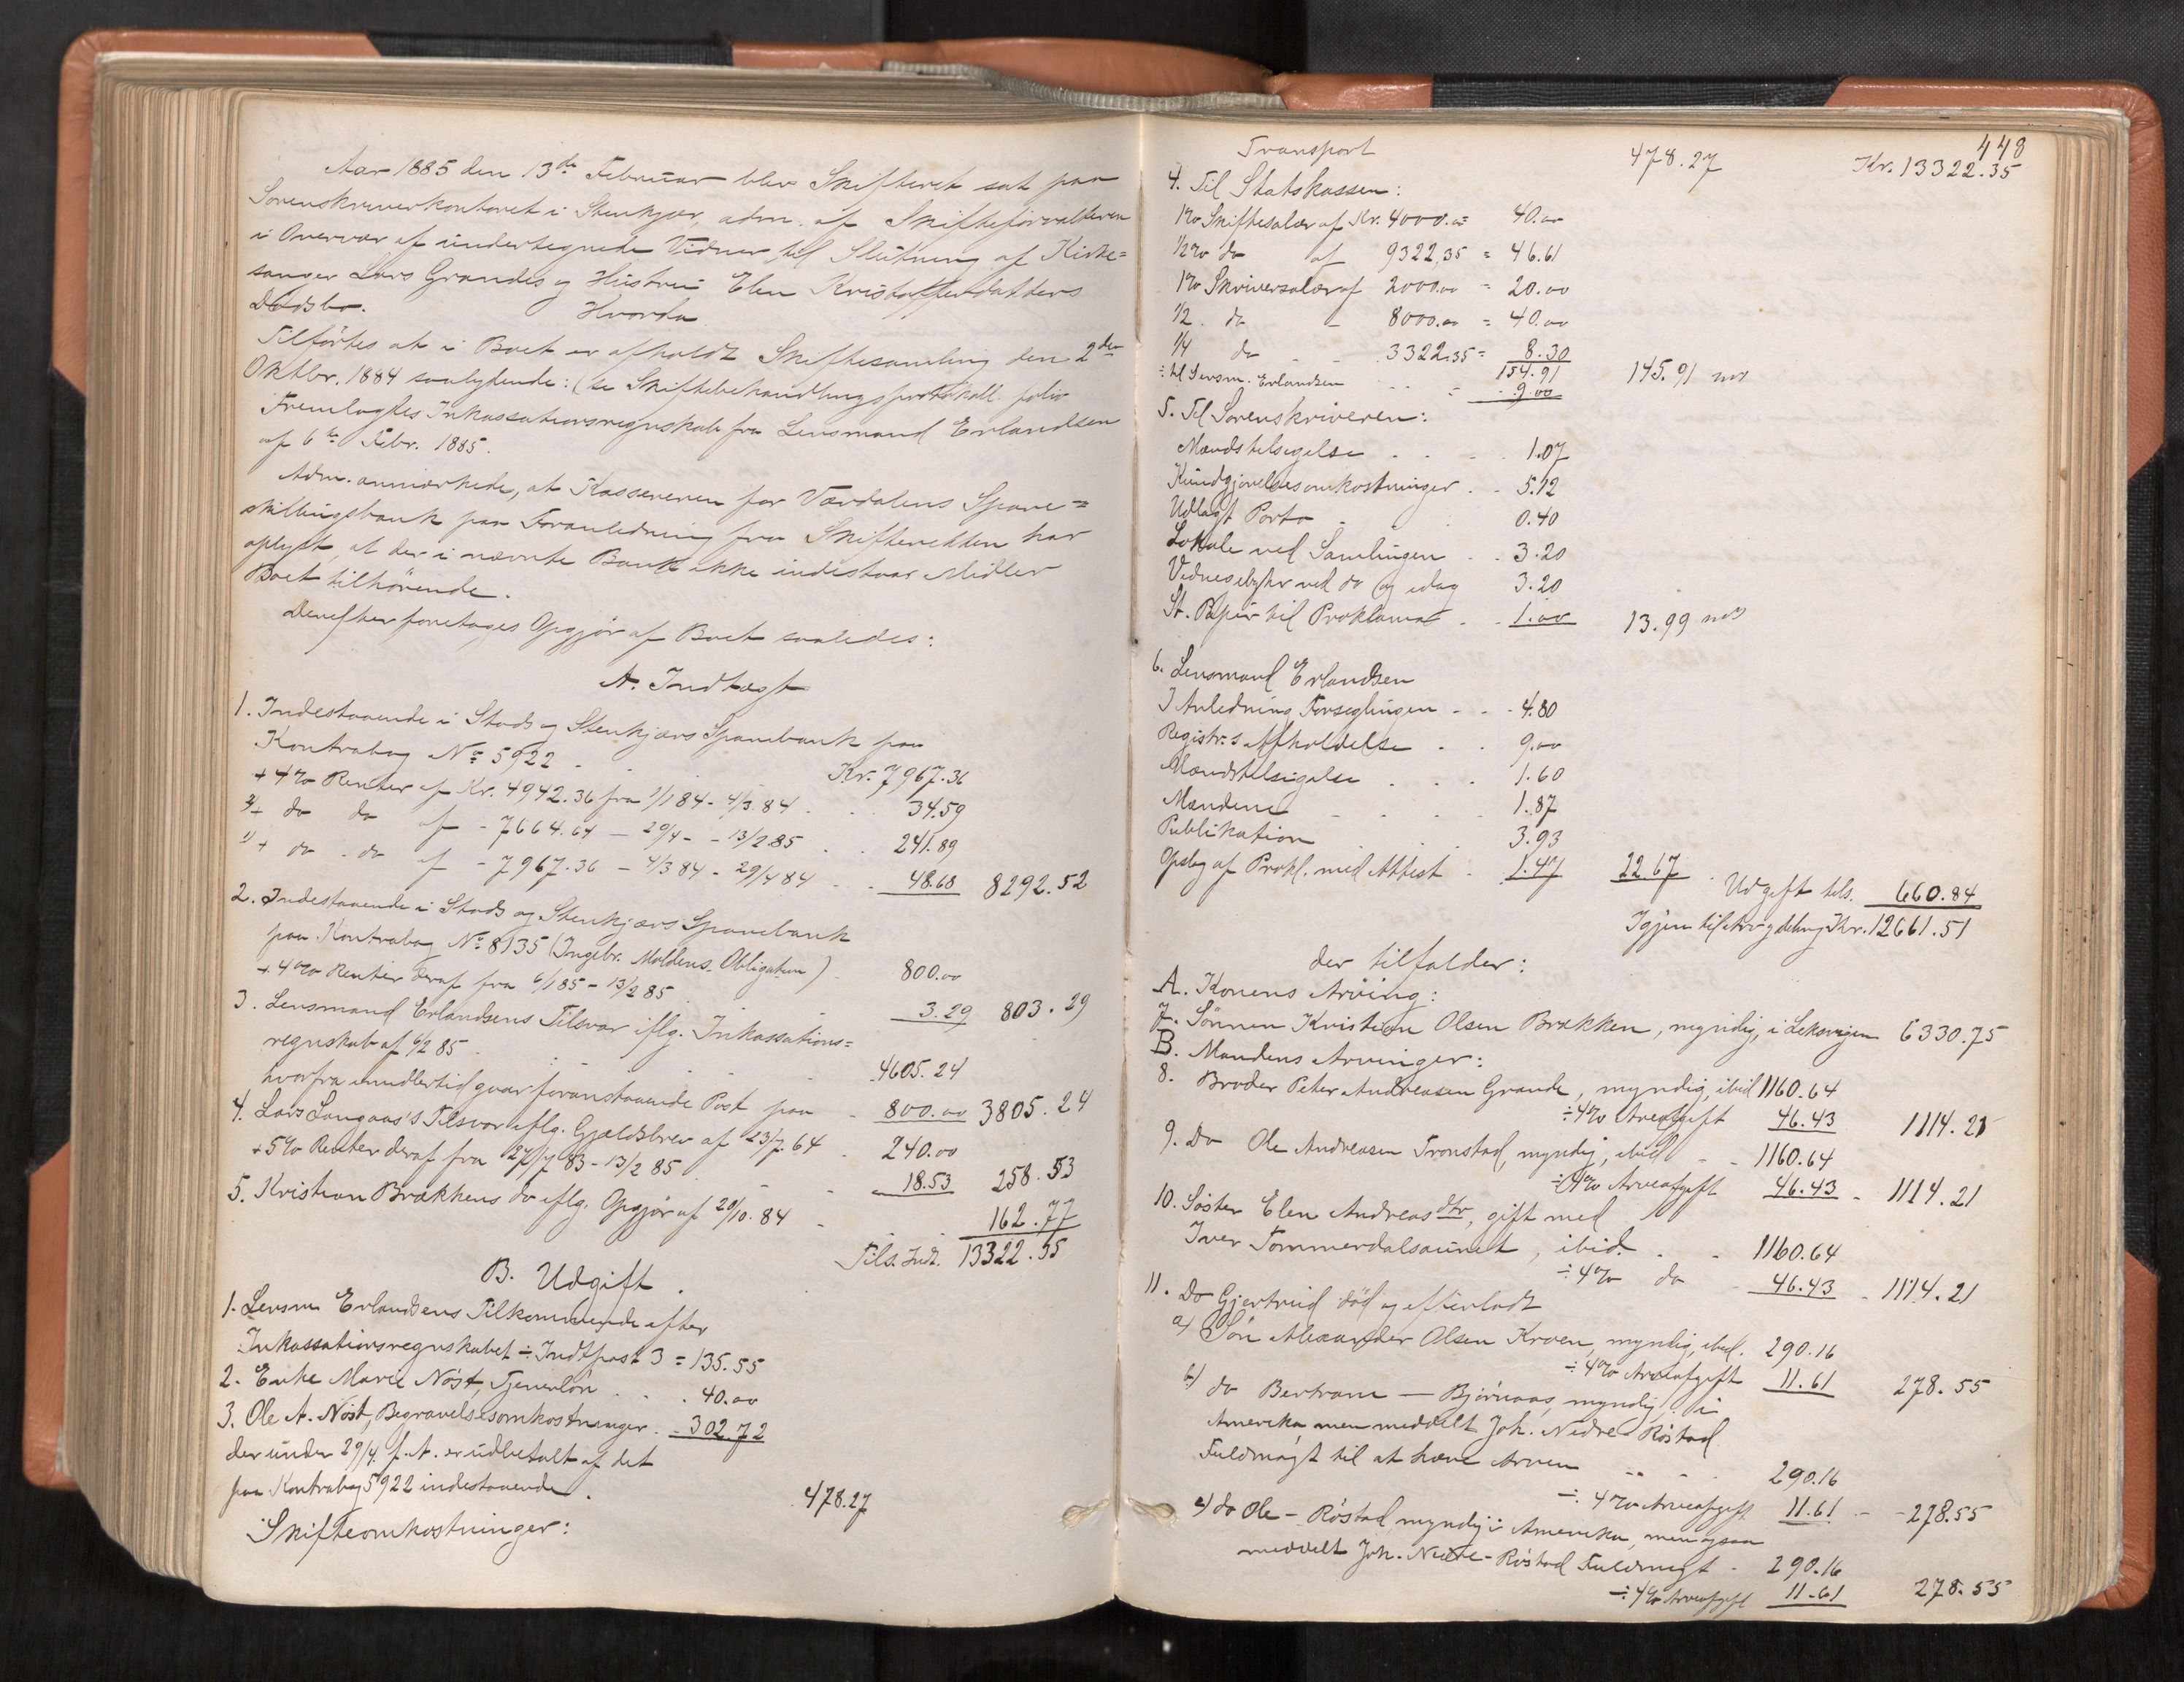 Aar 1885 den 13de Februar blev Skifteret sat paa
Sorenskriverkontoret i Stenkjær, adm. af Skifteforvalteren
i Overvær af undertegnede Vidner, til Slutning af Kirke=
sanger Lars Grandes og Hustru Elen Kristoffersdatters
Dødsbo.
Hvorda
Tilførtes at i Boet er afholdt Skiftesamling den 2den
Oktbr. 1884 saalydende: (se Skiftebehandlingsprotokoll folio
Fremlagdes Inkassationsregnskab fra Lensmand Erlandsen
af 6te Febr. 1885.
Adm. anmærkede, at Kassereren for Værdalens Spare=
skillingsbank paa Foranledning fra Skifteretten har
oplyst, at der i nævnte Bank ikke indestaar Midler
Boet tilhørende.
Derefter foretages Opgjør af Boet saaledes:
A. Indtægt
1. Indestaaende i Stods og Stenkjærs Sparebank paa
Kontrabog No 5922 . . Kr. 7967.36
+ 4% Renter af Kr. 4942.36 fra 1/1 84 - 4/3 84 . . 34.59
+ do do af - 7664.64 — 29/4 - - 13/2 85 . . 241.89
+ do . do af - 7967.36 - 4/3 84 - 29/4 84 . . 48.68 8292.52
2. Indestaaende i Stods og Stenkjærs Sparebank
paa Kontrabog No 8135 (Ingebr. Moldens Obligation) 800.00
+ 4% Renter deraf fra 6/1 85 - 13/2 85 . . 3.29 803.29
3. Lensmand Erlandsens Tilsvar iflg. Inkassations=
regnskab af 6/2 85 . . . 4605.24
hvorfra imidlertid gaar foranstaaende Post paa - 800.00 3805.24
4. Lars Langaas's Tilsvar iflg. Gjældsbrev af 23/7 64 - 240.00
+ 5% Renter deraf fra 27/7 83 - 13/2 85 . - - 18.53 258.53
5. Kristian Brækkens do iflg. Opgjør af 20/10. 84 - . 162.77
Tils. Indt. 13322.35
B. Udgift.
1. Lensm. Erlandsens Tilkommende efter
Inkassationsregnskabet ÷ Indtpost 3 = 135.55
2. Enke Marie Nöst, Tjenerløn . . . 40.00
3. Ole A. Nöst, Begravelsesomkostninger . - 302.72
der under 29/4 f. A. er udbetalt af det
paa Kontrabog 5922 indestaaende . 478.27
Skifteomkostninger:
448
Transport 478.27 Kr. 13322.35
4. Til Statskassen:
1% Skiftesalær af Kr. 4000.00 = 40.00
1/2% do af 9322,35 = 46.61
1% Skriversalær af 2000.00 = 20.00
1/2 . do - 8000.00 = 40.00
1/4 do - - 3322.35 = 8.30
154.91
÷ til Lensm. Erlandsen . . = 9.00 145.91
5. Til Sorenskriveren:
Mændstilsigelse . . . 1.07
Kundgjørelsesomkostninger . . 5.12
Udlagt Porto . . 0.40
Lokale ved Samlingen . . 3.20
Vidnegebyhr ved do og idag 3.20
St. Papir til Proklama . . 1.00 13.99
6. Lensmand Erlandsen
I Anledning Forseglingen - . . 4.80
Registr.s Afholdelse . . 9.00
Mændstilsigelse . . . 1.60
Mændene - . . . 1.87
Publikation . . . 3.93
Opslag af Prokl. med Attest . 1.47 22.67 . Udgift tils. 660.84
Igjen til Arv og deling Kr. 12661.51
der tilfalder:
A. Konens Arving:
7. Sønnen Kristian Olsen Brækken, myndig, i Leksvigen 6330.75
B. Mandens Arvinger:
8. Broder Peter Andreasen Grande, myndig, ibid 1160.64
÷ 4% Arveafgift 46.43 1114.21
9. Do Ole Andreasen Tronstad, myndig, ibid - - 1160.64
÷ 4% Arveafgift 46.43 - 1114.21
10. Søster Elen Andreasdtr, gift med
Iver Tommerdalsaunet, ibid. . - 1160.64
÷ 4% do - 46.43 - 1114.21
11. Do Gjertrud död og efterladt
a) Søn Alexander Olsen Kroen, myndig, ibid. 290.16
÷ 4% Arveafgift 11.61 278.55
b) do Bertram — Bjørnaas, myndig, i
Amerika, men meddelt Joh. Nedre-Röstad
Fuldmagt til at hæve Arven . . - 290.16
÷ 4% Arveafgift 11.61 - - 278.55
c) do Ole - Röstad, myndig i Amerika, men ogsaa
meddelt Joh. Nedre-Röstad Fuldmagt - 290.16
÷ 4% Arveafgift 11.61 278.55